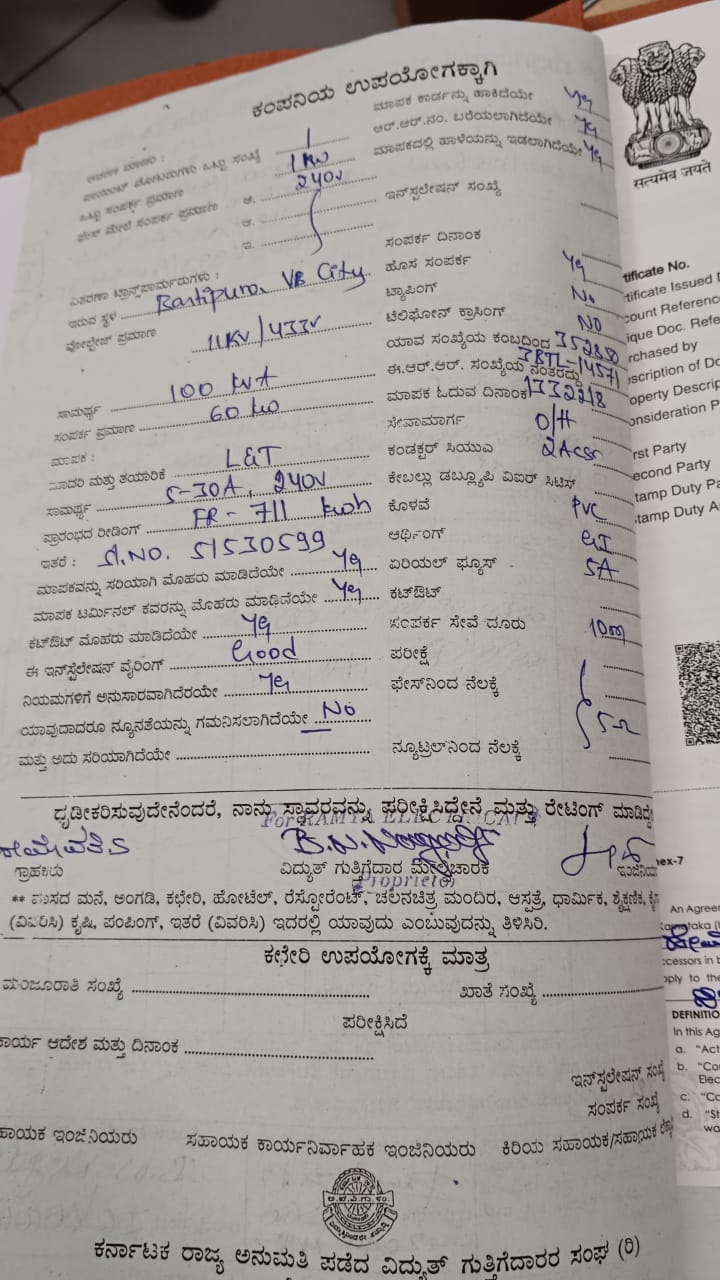 ಕಂಪನಿಯ ಉಪಯೋಗಕ್ಕಾಗಿ
ಮಾಪಕ ಕಾರ್ಡನ್ನು ಹಾಕಿದೆಯೇ Yes
ಒಟ್ಟು ಸಂಖ್ಯೆ 1
ಆರ್.ಆರ್.ನಂ. ಬರೆಯಲಾಗಿದೆಯೇ Yes
ಒಟ್ಟು ಸಂಪರ್ಕ ಪ್ರಮಾಣ 1 KW
ಮಾಪಕದಲ್ಲಿ ಹಾಳೆಯನ್ನು ಇಡಲಾಗಿದೆಯೇ Yes
ಫೇಸ್ ಮೇಲೆ ಸಂಪರ್ಕ ಪ್ರಮಾಣ ಅ. 240V
ಆ.
ಇ.
ಇನ್‌ಸ್ಟಲೇಷನ್ ಸಂಖ್ಯೆ
ಸಂಪರ್ಕ ದಿನಾಂಕ
ವಿತರಣಾ ಟ್ರಾನ್ಸ್‌ಫಾರ್ಮರುಗಳು :
ಹೊಸ ಸಂಪರ್ಕ Yes
ಇರುವ ಸ್ಥಳ VB City
ಟ್ಯಾಪಿಂಗ್ No
ವೋಲ್ಟೇಜ್ ಪ್ರಮಾಣ 11KV/433V
ಟೆಲಿಫೋನ್ ಕ್ರಾಸಿಂಗ್ NO
ಯಾವ ಸಂಖ್ಯೆಯ ಕಂಬದಿಂದ
ಸಾಮರ್ಥ್ಯ 100 KVA
ಈ.ಆರ್.ಆರ್. ಸಂಖ್ಯೆಯ ನಂತರದ್ದು
ಸಂಪರ್ಕ ಪ್ರಮಾಣ 60 KW
ಮಾಪಕ ಓದುವ ದಿನಾಂಕ
ಮಾಪಕ :
ಸೇವಾಮಾರ್ಗ O/H
ಮಾದರಿ ಮತ್ತು ತಯಾರಿಕೆ L&T
ಕಂಡಕ್ಟರ್ ಸಿಯುವಿ 2Acsr
ಸಾಮರ್ಥ್ಯ 5-30A, 240V
ಕೇಬಲ್ಲು ಡಬ್ಲ್ಯೂಪಿ ವಿಐರ್ ಸಿಟಿಸ್
ಪ್ರಾರಂಭದ ರೀಡಿಂಗ್ FR - 711 kwh
ಕೊಳವೆ PVC
ಇತರೆ : Sl.NO. 51530599
ಆರ್ಥಿಂಗ್ GI
ಮಾಪಕವನ್ನು ಸರಿಯಾಗಿ ಮೊಹರು ಮಾಡಿದೆಯೇ Yes
ಏರಿಯಲ್ ಫ್ಯೂಸ್ 5A
ಮಾಪಕ ಟರ್ಮಿನಲ್ ಕವರನ್ನು ಮೊಹರು ಮಾಡಿದೆಯೇ Yes
ಕಟ್‌ಔಟ್
ಕಟ್‌ಔಟ್ ಮೊಹರು ಮಾಡಿದೆಯೇ Yes
ಸಂಪರ್ಕ ಸೇವೆ ದೂರು 10m
ಈ ಇನ್‌ಸ್ಟೆಲೇಷನ್ ವೈರಿಂಗ್ Good
ಪರೀಕ್ಷೆ
ನಿಯಮಗಳಿಗೆ ಅನುಸಾರವಾಗಿದೆರಯೇ Yes
ಫೇಸ್‌ನಿಂದ ನೆಲಕ್ಕೆ
ಯಾವುದಾದರೂ ನ್ಯೂನತೆಯನ್ನು ಗಮನಿಸಲಾಗಿದೆಯೇ No
5Ω
ಮತ್ತು ಅದು ಸರಿಯಾಗಿದೆಯೇ
ನ್ಯೂಟ್ರಲ್‌ನಿಂದ ನೆಲಕ್ಕೆ
ಧೃಡೀಕರಿಸುವುದೇನೆಂದರೆ, ನಾನು ಸ್ಥಾವರವನ್ನು ಪರೀಕ್ಷಿಸಿದ್ದೇನೆ ಮತ್ತು ರೇಟಿಂಗ್ ಮಾಡಿದ್ದೇ
For RAMYA ELECTRICALS
ಗ್ರಾಹಕರು
ವಿದ್ಯುತ್ ಗುತ್ತಿಗೆದಾರ ಮೇಲ್ವಿಚಾರಕ
ಇಂಜಿನಿಯ
Proprietor
** ವಾಸದ ಮನೆ, ಅಂಗಡಿ, ಕಛೇರಿ, ಹೋಟೆಲ್, ರೆಸ್ಟೋರೆಂಟ್, ಚಲನಚಿತ್ರ ಮಂದಿರ, ಆಸ್ಪತ್ರೆ, ಧಾರ್ಮಿಕ, ಶೈಕ್ಷಣಿಕ,
(ವಿವರಿಸಿ) ಕೃಷಿ, ಪಂಪಿಂಗ್, ಇತರೆ (ವಿವರಿಸಿ) ಇದರಲ್ಲಿ ಯಾವುದು ಎಂಬುವುದನ್ನು ತಿಳಿಸಿರಿ.
ಕಛೇರಿ ಉಪಯೋಗಕ್ಕೆ ಮಾತ್ರ
ಮಂಜೂರಾತಿ ಸಂಖ್ಯೆ
ಖಾತೆ ಸಂಖ್ಯೆ
ಪರೀಕ್ಷಿಸಿದೆ
ಕಾರ್ಯ ಆದೇಶ ಮತ್ತು ದಿನಾಂಕ
ಇನ್‌ಸ್ಟಲೇಷನ್ ಸಂಖ್ಯೆ
ಸಂಪರ್ಕ ಸಂಖ್ಯೆ
ಹಾಯಕ ಇಂಜಿನಿಯರು
ಸಹಾಯಕ ಕಾರ್ಯನಿರ್ವಾಹಕ ಇಂಜಿನಿಯರು
ಕಿರಿಯ ಸಹಾಯಕ/ಸಹಾಯಕ
ಕರ್ನಾಟಕ ರಾಜ್ಯ ಅನುಮತಿ ಪಡೆದ ವಿದ್ಯುತ್ ಗುತ್ತಿಗೆದಾರರ ಸಂಘ (ರಿ)
ಸತ್ಯಮೇವ ಜಯತೆ
tificate No.
tificate Issued D
count Reference
ique Doc. Refe
rchased by
scription of Do
operty Descrip
onsideration P
rst Party
econd Party
tamp Duty Pa
tamp Duty A
nex-7
An Agreer
Karnataka (
ccessors in b
pply to the
DEFINITIO
In this Ag
a. "Act
b. "Co
Elec
c. "Co
d. "St
wo